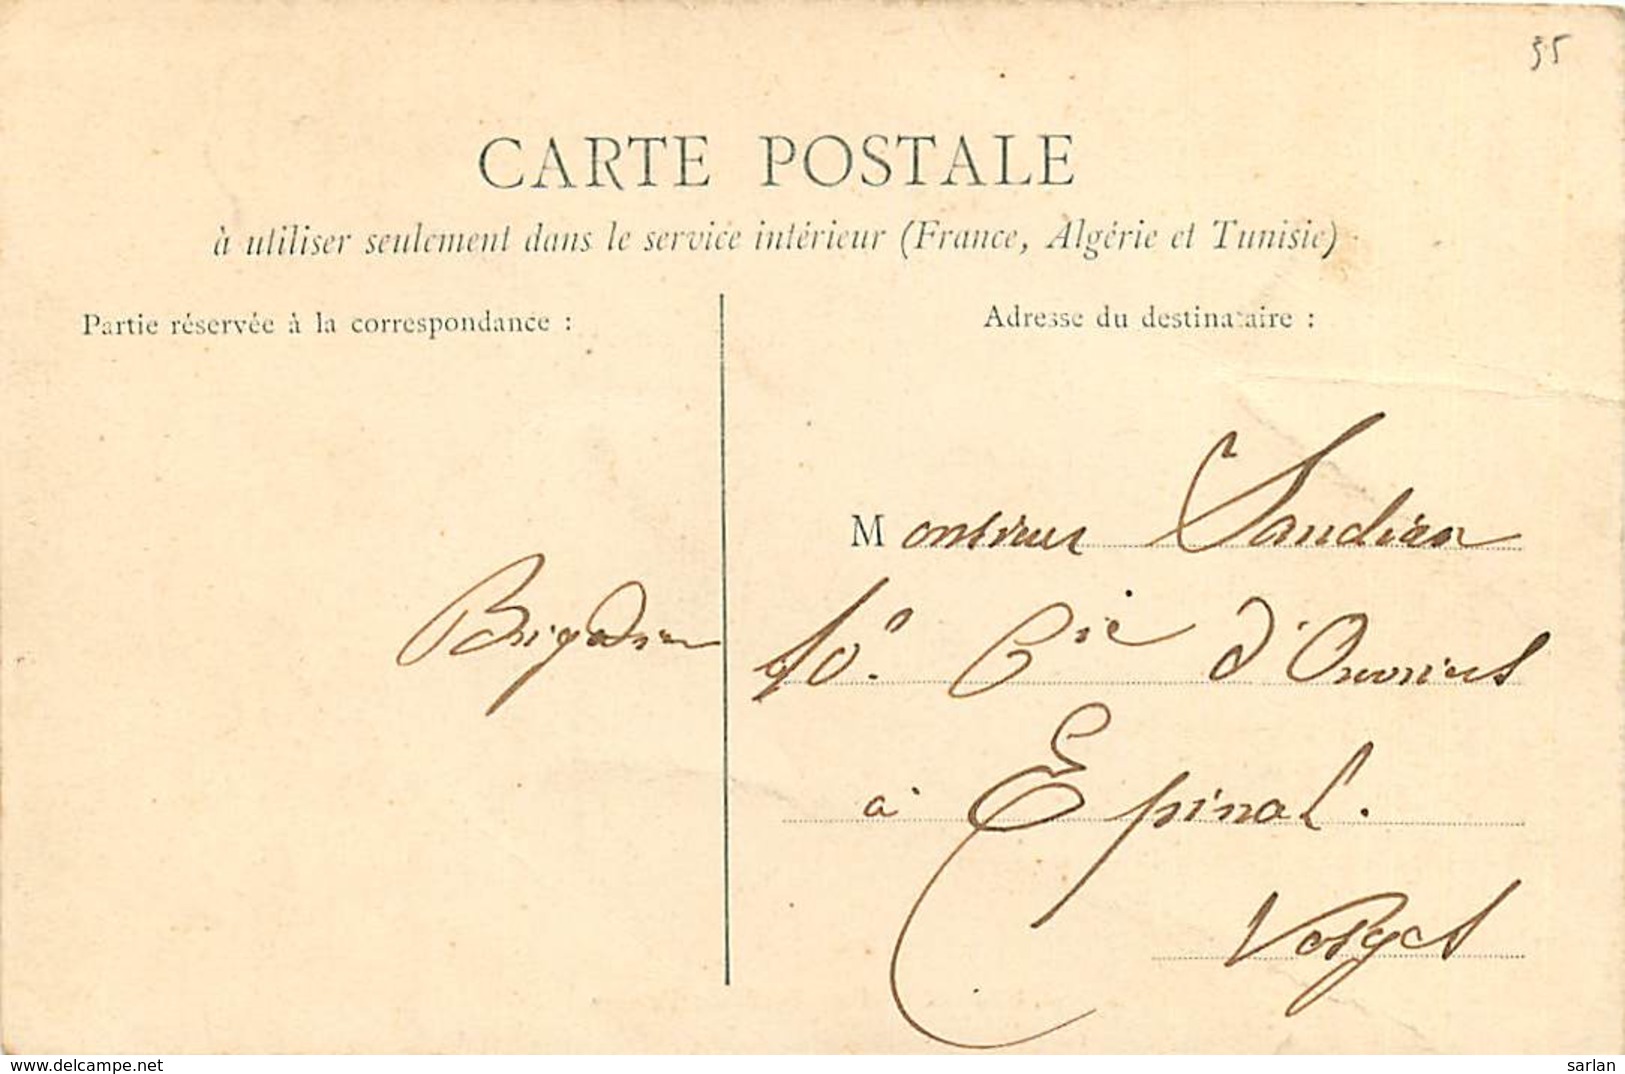 35
CARTE POSTALE
à utiliser seulement dans le service intérieur (France, Algérie et Tunisie)
Partie réservée à la correspondance :
Adresse du destinataire :
Monsieur Sandian
Brigadier
10e Cie d'Ouvriers
à Epinal.
Vosges
www.delcampe.net
sarlan